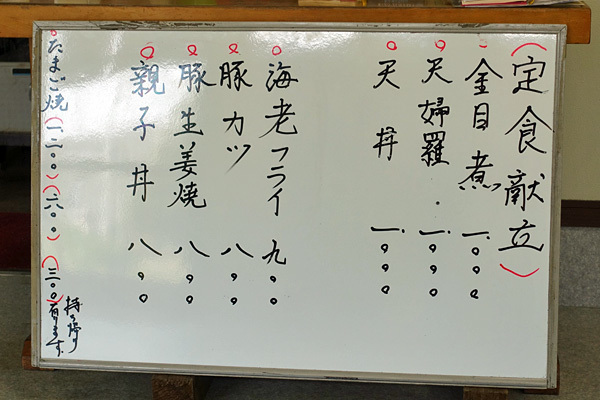 （定食献立）
金目煮 一、〇〇〇
天婦羅 一、〇〇〇
天丼 一、〇〇〇
海老フライ 九〇〇
豚カツ 八〇〇
豚生姜焼 八〇〇
親子丼 八〇〇
たまご焼（一二〇〇）（六〇〇）（三〇〇）
持ち帰り有ります。